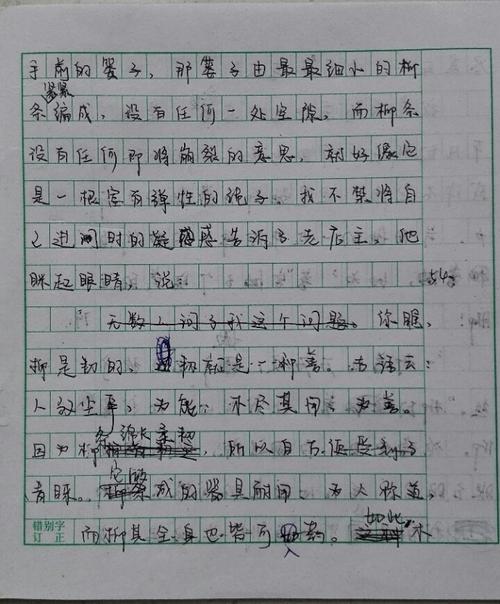 手前的篓子，那篓子由最最细小的柳
条紧紧编成，没有任何一处空隙，而柳条
没有任何即将崩裂的意思，就好像它
是一根富有弹性的绳子。我不禁将自
己进门时的疑惑感告诉了老店主，他
眯起眼睛，说：
无数人问了我这个问题。你瞧，
柳是韧的，韧征是一种善。古语云：
人致尘率，为能，木尽其用，为善。
因为柳条绵长柔韧，所以自古便受到了
青睐。它所成的器具耐用，为人称道，
错别字
订正
而柳其全身也皆可药。如此木